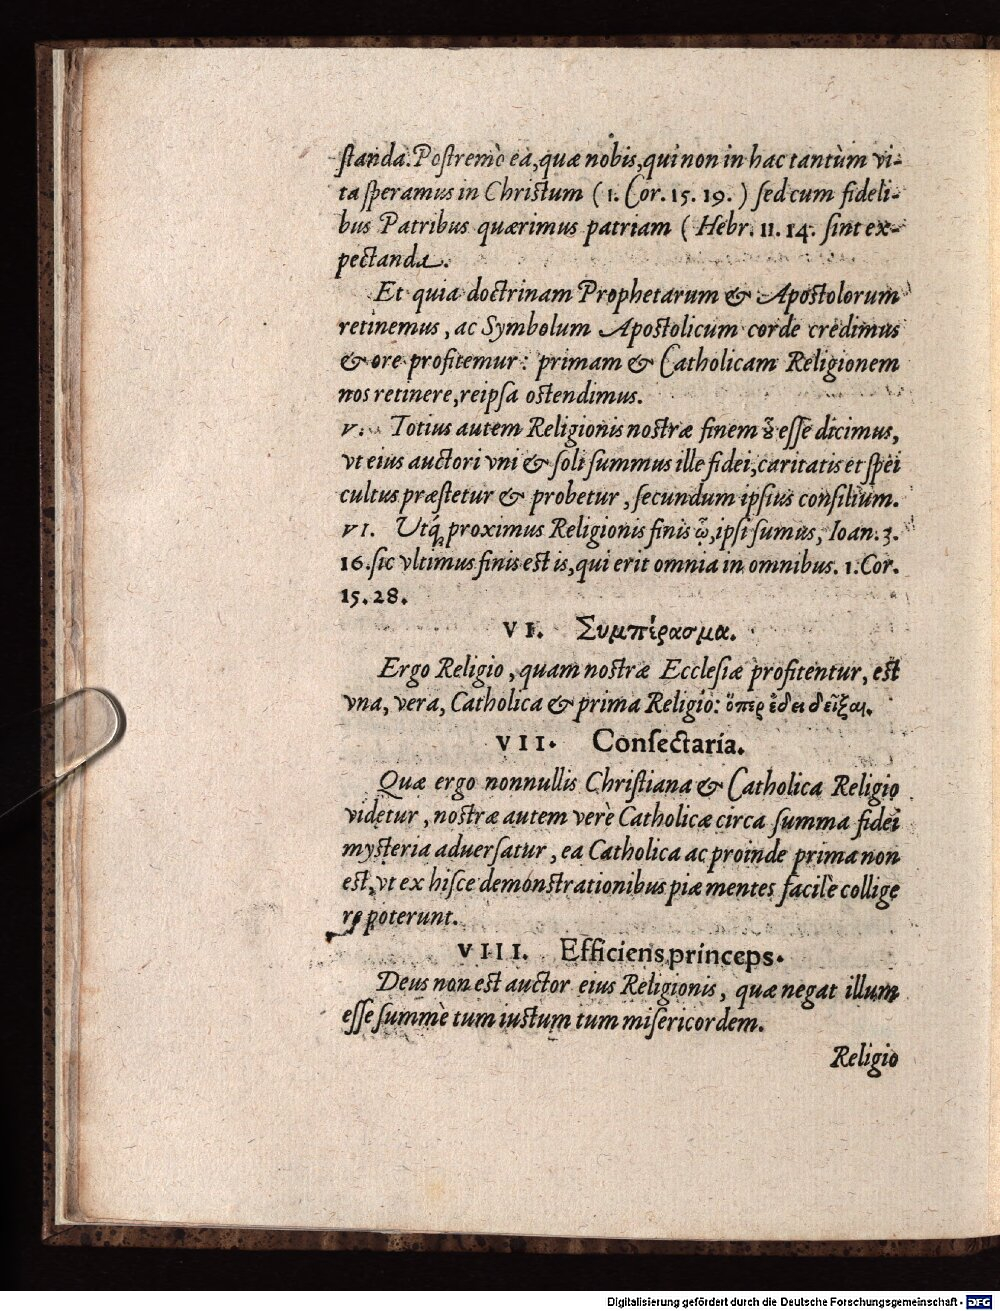 ſtanda. Poſtremò ea, quæ nobis, qui non in hac tantùm vi-
ta ſperamus in Chriſtum (1. Cor. 15. 19.) ſed cum fideli-
bus Patribus quærimus patriam (Hebr. 11. 14. ſint ex-
pectanda.
Et quia doctrinam Prophetarum & Apoſtolorum
retinemus, ac Symbolum Apoſtolicum corde credimus
& ore profitemur: primam & Catholicam Religionem
nos retinere, reipſa oſtendimus.
V. Totius autem Religionis noſtræ finem ȣ̃ eſſe dicimus,
vt eius auctori vni & ſoli ſummus ille fidei, caritatis et ſpei
cultus præſtetur & probetur, ſecundum ipſius conſilium.
VI. Utq́ proximus Religionis finis ᾧ, ipſi ſumus, Ioan. 3.
16. ſic vltimus finis eſt is, qui erit omnia in omnibus. 1. Cor.
15. 28.
VI. Συμπέρασμα.
Ergo Religio, quam noſtræ Eccleſiæ profitentur, eſt
vna, vera, Catholica & prima Religio: ὅπερ ἔδει δεῖξαι.
VII. Conſectaria.
Quæ ergo nonnullis Chriſtiana & Catholica Religio
videtur, noſtræ autem verè Catholicæ circa ſumma fidei
myſteria aduerſatur, ea Catholica ac proinde prima non
eſt, vt ex hiſce demonſtrationibus piæ mentes facilè collige
re poterunt.
VIII. Efficiens princeps.
Deus non eſt auctor eius Religionis, quæ negat illum
eſſe ſummè tum iuſtum tum miſericordem.
Religio
Digitalisierung gefördert durch die Deutsche Forschungsgemeinschaft - DFG